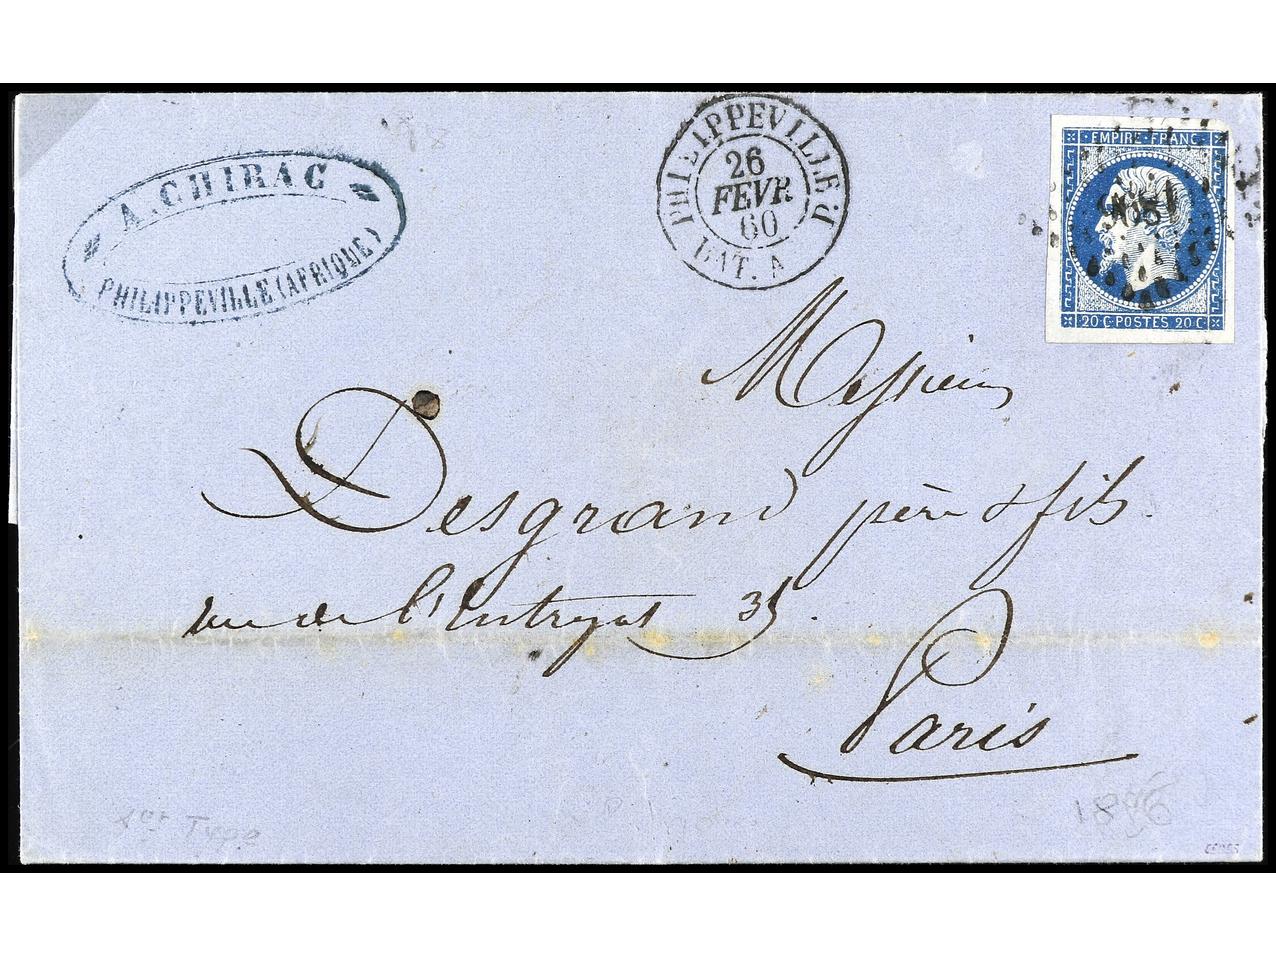 A. CHIRAC
PHILIPPEVILLE (AFRIQUE)
PHILIPPEVILLE
26
FEVR
60
BAT. A
EMPIRE FRANC
20 C POSTES 20 C
Messieurs
Desgrand père & fils
rue de l'Entrepot 35.
Paris
1er Type